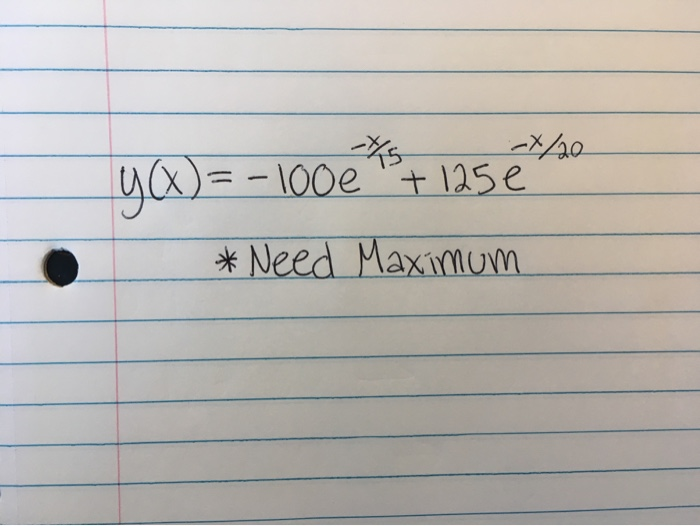 y(x) = -100e^{-x/15} + 125e^{-x/20}
* Need Maximum